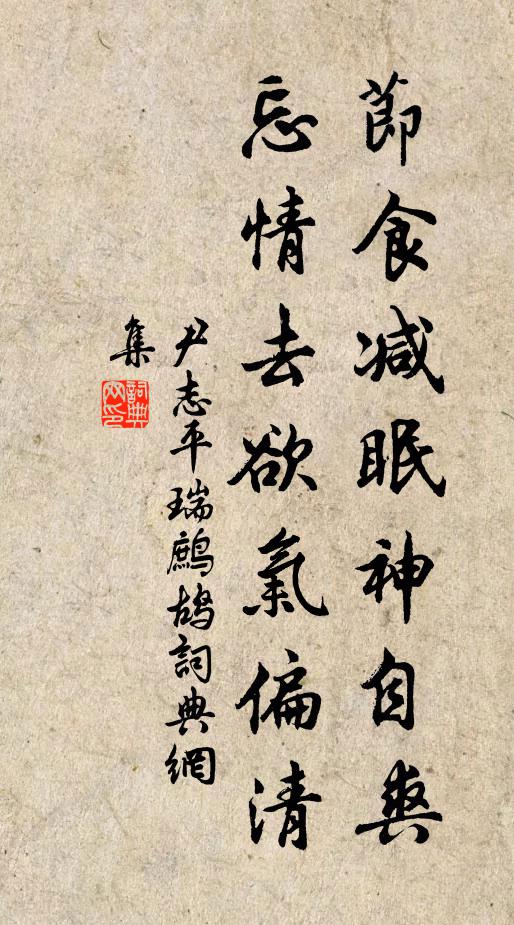 節食減眠神自爽
忘情去欲氣偏清
尹志平瑞鷓鴣詞典網
集
詞典
网印